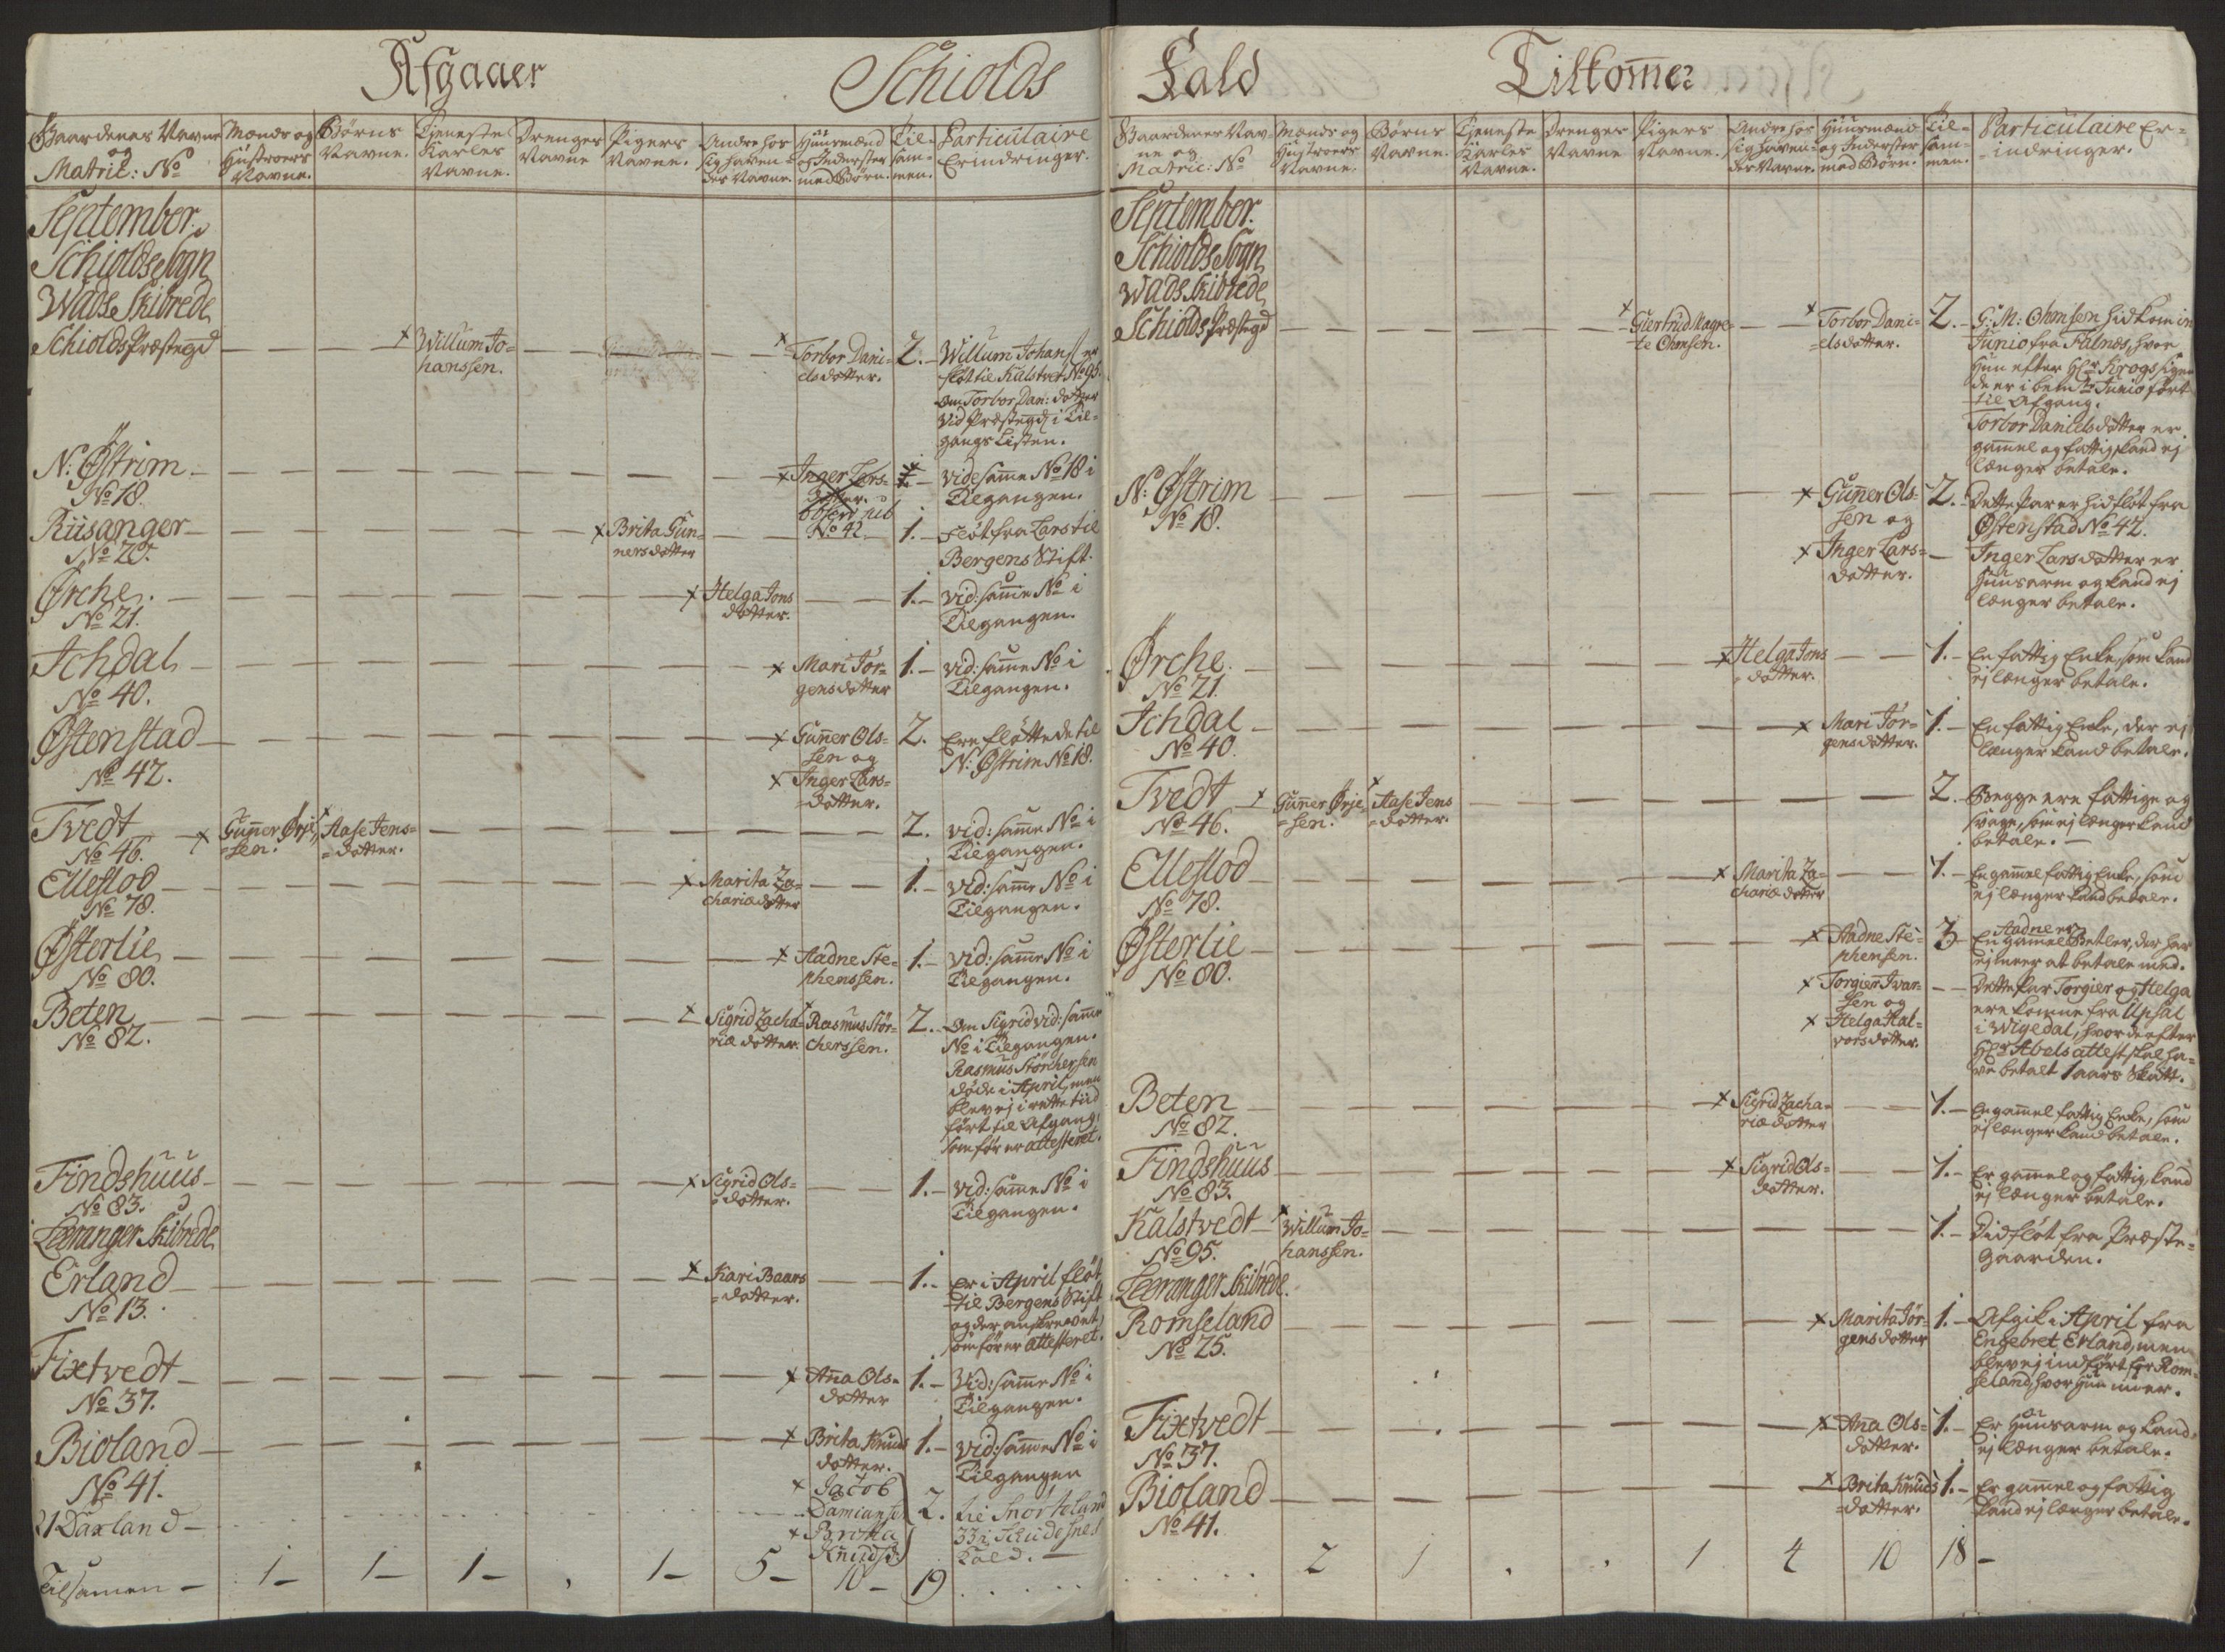 Afgaaer Schiolds
Gaardenes Navne og Matric: No
Mands og Hustroers Navne.
Børns Navne.
Tjeneste Karles Navne.
Drenges Navne
Pigers Navne.
Andre hos sig haven-des Navne.
Huusmænd og Inderster med Børn.
Til-sam-men.
Particulaire Erindringer.
September.
Schiolds Sogn
Wads Skibrede
Schiolds Præstegd
Willum Jo-
hanssen.
Torbor Dani-
elsdotter.
2.
Willum Johans: er
fløt til Kalstvet No 95.
Om Torbor Dan: dotter
vid Præstegd i Til-
gangs Listen.
N: Østrim
No 18.
Inger Lars-
dotter.
obser: ved
No 42
vide samme No 18 i
Tilgangen.
Riisanger
No 20.
Brita Gun-
nersdotter
1.
Fløt fra Lars til
Bergens Stift.
Ørche.
No 21.
Helga Jons
dotter.
1.
vid: samme No i
Tilgangen.
Ichdal
No 40.
Mari Jør-
gensdotter
1.
vid: samme No i
Tilgangen.
Østenstad
No 42.
Gunner Ols-
sen og
Inger Lars-
dotter.
2.
Ere fløttede til
N: Østrim No 18.
Tvedt
No 46.
Gunner Ørje-
sen.
Aase Jens-
dotter.
2.
vid: samme No i
Tilgangen.
Elleflod
No 78.
Marita Za-
chariædotter
1.
vid: samme No i
Tilgangen.
Østerlie
No 80.
Aadne Ste-
phenssen.
1.
vid: samme No i
Tilgangen.
Beten
No 82.
Sigrid Zacha-
riæ dotter.
Rasmus Stør-
cherssen.
2.
Om Sigrid vid: samme
No i Tilgangen.
Rasmus Størchersen
døde i April, men
blev ej i rette tiid
ført til Afgang,
som før er attesteret.
Findshuus
No 83.
Sigrid Ols-
dotter.
1.
vid: samme No i
Tilgangen.
Leeranger Skibrede
Erland
No 13.
Kari Baars
dotter.
1.
Er i April fløt
til Bergens Stift
og der anskrevet,
som før er attesteret.
Fixtvedt
No 37.
Anna Ols-
dotter
1.
vid: samme No i
Tilgangen.
Bioland
No 41.
Brita Knuds
dotter.
1.
vid: samme No i
Tilgangen
21 Daxland
Jacob
Damiansen
Brita
Knudsd:
2.
til Snorteland
33 i Scudesnes
Kald.
Tilsamen
1 1 1 1 5 10 19

Kald Tilkommer
Gaardenes Nav-ne og Matric: No
Mands og Hustroers Navne.
Børns Navne.
Tjeneste Karles Navne.
Drenges Navne
Pigers Navne.
Andre hos sig haven-des Navne.
Huusmænd og Inderster med Børn.
Til-sam-men.
Particulaire Er-indringer.
September.
Schiolds Sogn
Wads Skibrede
Schiolds Præstegd
Giertrud Magre-
te Ohmsen.
Torbor Dani-
elsdotter.
2.
G: M: Ohmsen hidkom in
Junio fra Falnæs, hvor
Hun efter Hr Krogs sigen-
de er i bemte Junio ført
til Afgang.
Torbor Danielsdotter er
gammel og fattig, kand ej
længer betale.
N: Østrim
No 18.
Gunner Ols-
sen og
Inger Lars-
dotter.
2.
Dette Par er hidfløt fra
Østenstad No 42.
Inger Larsdotter er
huusarm og kand ej
længer betale.
Ørche.
No 21.
Helga Jons
dotter.
1.
En fattig Enke, som kand
ej længer betale.
Ichdal
No 40.
Mari Jør-
gensdotter.
1.
En fattig Enke, der ej
længer kand betale.
Tvedt
No 46.
Gunner Ørje-
sen.
Aase Jens
dotter.
2.
Begge ere fattige og
svage, som ej længer kand
betale.
Elleflod
No 78.
Marita Za-
chariædotter
1.
En gammel fattig Enke, som
ej længer kand betale.
Østerlie
No 80.
Aadne Ste-
phensen.
3
Aadne er
En gammel Betler, der har
ej meer at betale med.
Torgier Ivar-
sen og
Helga Hal-
vorsdotter.
Dette Par Torgier og Helga
ere komne fra Upsal
i Wigedal, hvor de efter
Hr Abels attest skal ha-
ve betalt 1 aars Skatt.
Beten
No 82.
Sigrid Zacha-
riædotter
1.
En gammel fattig Enke, som
ej længer kand betale.
Findshuus
No 83.
Sigrid Ols-
dotter.
1.
Er gammel og fattig, kand
ej længer betale.
Kalstvedt
No 95.
Willum Jo-
hanssen.
1.
Didfløt fra Præste-
Gaarden.
Leeranger Skibrede.
Romseland
No 25.
Marita Jør-
gensdotter
1.
Afgik i April fra
Engebret Erland, men
blev ej indført for Rom-
seland, hvor Hun nu er.
Fixtvedt
No 37.
Anna Ols-
dotter.
1.
Er huusarm og kand
ej længer betale.
Bioland
No 41.
Brita Knuds
dotter.
1.
Er gammel og fattig
kand ej længer betale.
2 1 1 4 10 18